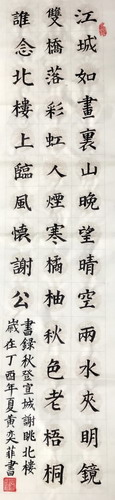 江城如畫裏山晚望晴空兩水夾明鏡
雙橋落彩虹人煙寒橘柚秋色老梧桐
誰念北樓上臨風懷謝公
書錄秋登宣城謝朓北樓
歲在丁酉年夏黃奕菲書